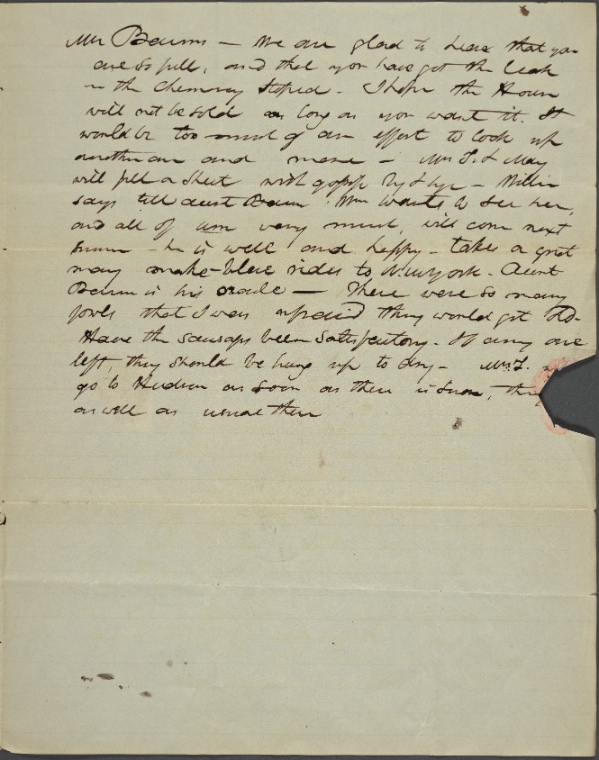 Mr Beum — We are glad to hear that you
are so full, and that you have got the leak
in the Chemney stoped. I hope the House
will not be sold as long as you want it. It
would be too much of an effort to look up
another and move — Mrs T. & May
will fill a sheet with gossip by & bye — Willie
says tell aunt he wants to see her,
and all of um very much, will come next
he is well and happy — takes a great
many make-blive rides to Newyork. Aunt
is his oracle — There were so many
fowls that I was afraid they would get old.
Have the sausages been satisfactory. If any are
left, they should be hung up to dry — Mrs. T.
go to Hudson as soon as there is snow,
as well as usual there